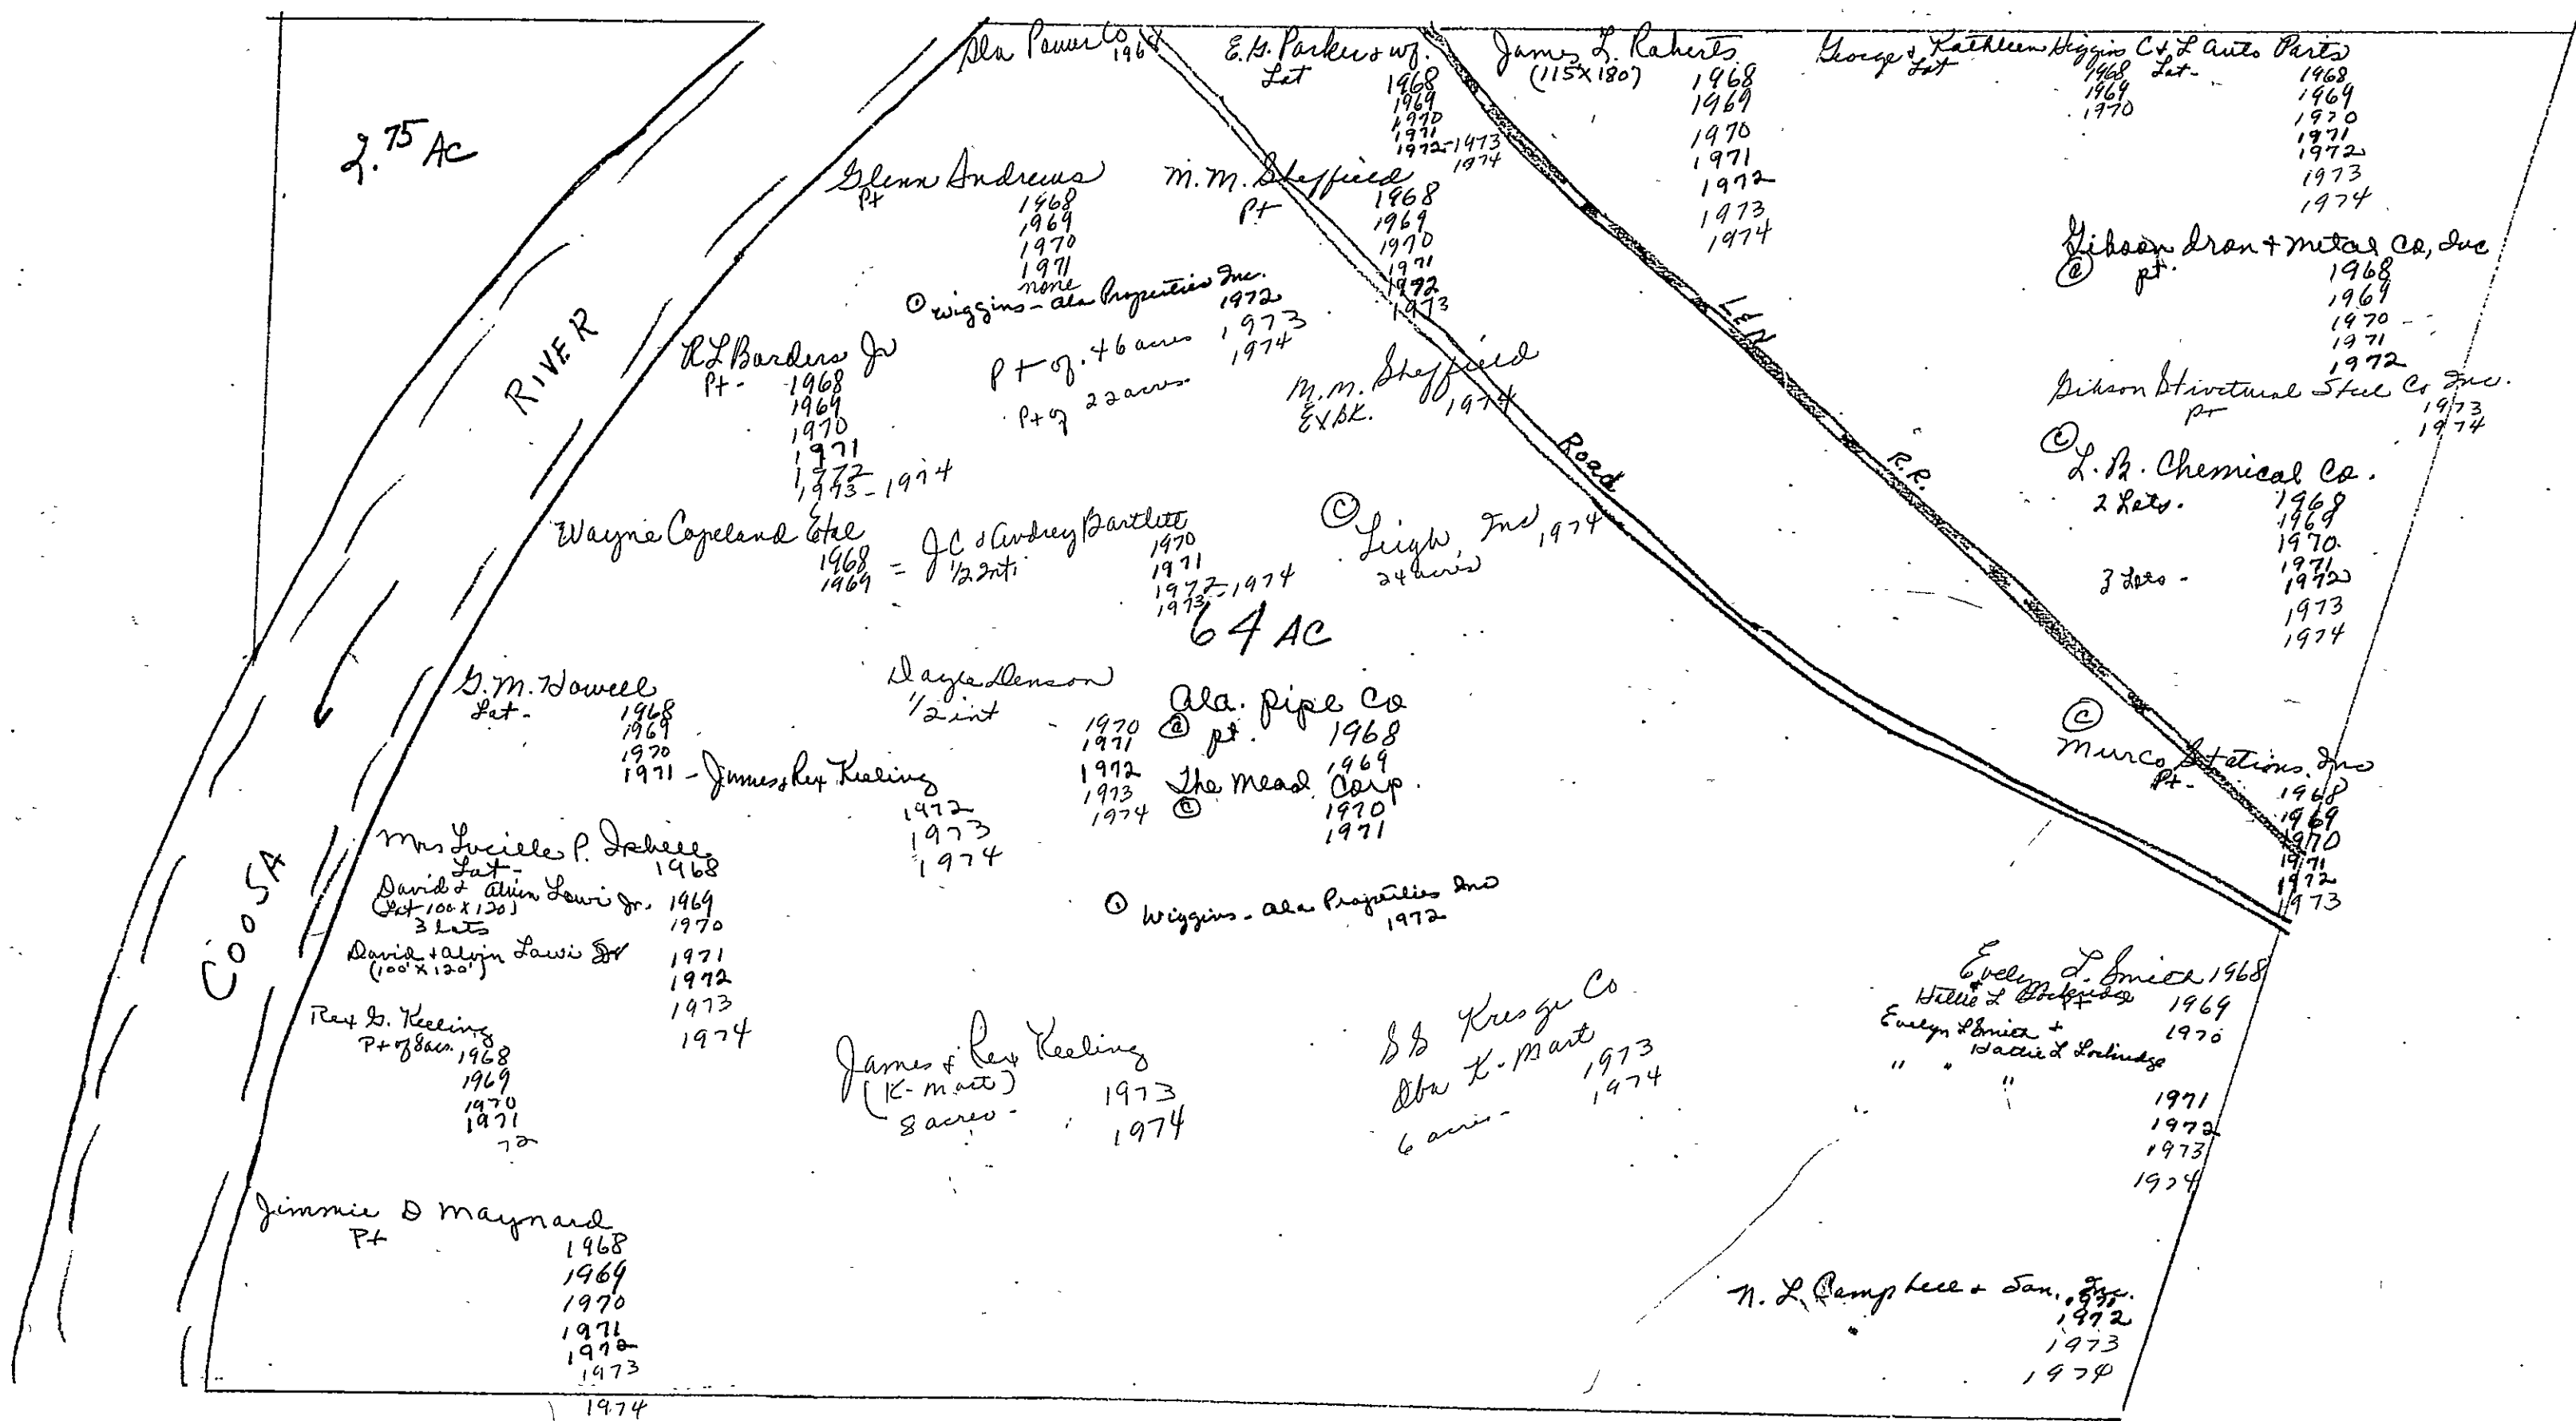 Ala Power Co
1968
E. G. Parker & wf.
Lot
1968
1969
1970
1971
1972-1973
1974
James L. Roberts
(115 X 180)
1968
1969
1970
1971
1972
1973
1974
George & Kathleen Higgins
Lot
1968
1969
1970
C & L Auto Parts
Lot -
1968
1969
1970
1971
1972
1973
1974
2.75 AC
Glenn Andrews
Pt
1968
1969
1970
1971
none
M. M. Sheffield
Pt
1968
1969
1970
1971
1972
1973
Gibson Iron & Metal Co, Inc
© pt.
1968
1969
1970
1971
1972
© Wiggins - Ala Properties Inc.
1972
Pt of .46 acres 1973
Pt of 22 acres 1974
L&N
R.R.
RIVER
R L Borders Jr
Pt - 1968
1969
1970
1971
1972
1973-1974
M. M. Sheffield
Ex Bk. 1974
Gibson Structural Steel Co Inc.
pt
1973
1974
Road
© L. B. Chemical Co.
2 Lots. 1968
1969
1970
1971
3 Lots - 1972
1973
1974
Wayne Copeland Etal
1968
1969
= J C & Audrey Bartlett
1/2 Int.
1970
1971
1972-1974
1973
© Leigh, Inc 1974
24 acres
64 AC
G. M. Howell
Lot -
1968
1969
1970
1971 - James & Rex Keeling
1972
1973
1974
Denson
1/2 int
1970
1971
1972
1973
1974
Ala. Pipe Co
© pt. 1968
1969
The Mead Corp.
© 1970
1971
©
Murco Stations, Inc
Pt -
1968
1969
1970
1971
1972
1973
COOSA
Mrs Lucille P. Isbell
Lot - 1968
David & Alvin Jr. 1969
(Lot 100 X 120)
3 Lots 1970
David & Alvin Jr 1971
(100' X 120')
1972
1973
1974
© Wiggins - Ala Properties Inc
1972
Rex G. Keeling
Pt of 8 acs. 1968
1969
1970
1971
72
James & Rex Keeling
(K-Mart)
8 acres -
1973
1974
SS Kresge Co
Dba K-Mart
1973
6 acres - 1974
Evelyn L. Smith 1968
Hattie L Lockridge 1969
Pt
Evelyn L Smith + 1970
Hattie L Lockridge
" " "
1971
1972
1973
1974
Jimmie D Maynard
Pt
1968
1969
1970
1971
1972
1973
1974
N. L. Campbell & Son, Inc.
1971
1972
1973
1974